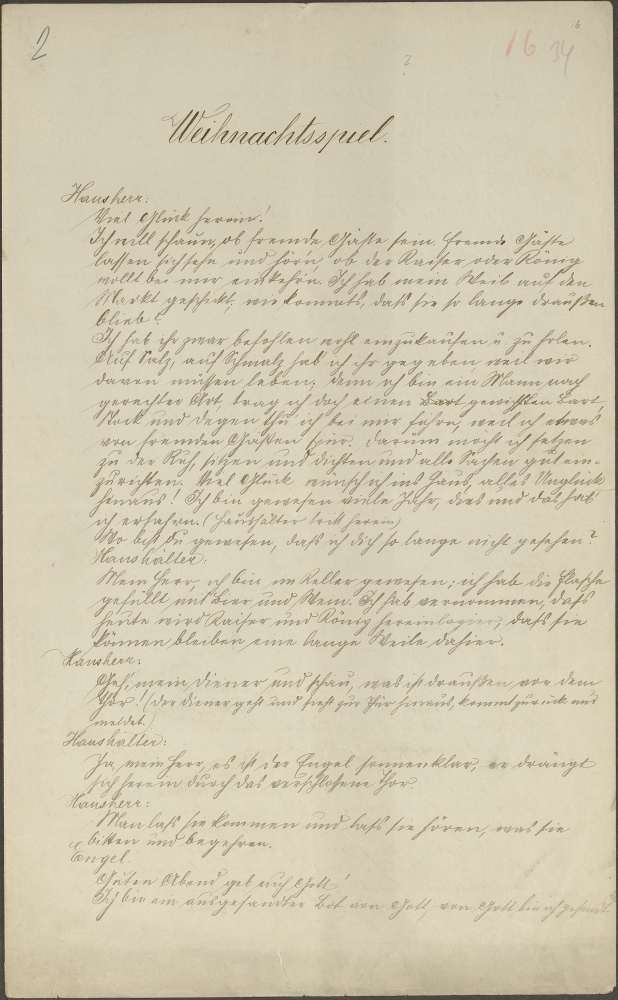 2
16 34
6
?
Weihnachtsspiel.
Hausherr:
Viel Glück herein!
Ich will schaun, ob fremde Gäste sein. Fremde Gäste
lassen sich sehn und hörn, ob der Kaiser oder König
wollt bei mir einkehrn. Ich hab mein Weib auf den
Markt geschikt, wie kommts, daß sie so lange draußen
blieb?
Ich hab ihr zwar befohlen wohl einzukaufen u. zu holen.
Auf Salz, auf Schmalz hab ich ihr gegeben, weil wir
davon müssen leben; denn ich bin ein Mann nach
gerechter Art, trag ich doch einen Bart gewichsten Bart,
Stock und Degen thu ich bei mir führn, weil ich etwas
von fremden Gästen spür. Darum möcht ich setzen
zu der Ruh, sitzen und dichten und alle Sachen gut ein-
zurichten. Viel Glück wünsch ich ins Haus, alles Unglück
hinaus! Ich bin gewesen viele Jahr, dies und das hab
ich erfahrn. (Haushälter tritt herein)
Wo bist Du gewesen, daß ich dich so lange nicht gesehen?
Haushälter:
Mein Herr, ich bin im Keller gewesen; ich hab die Flasche
gefüllt mit Bier und Wein. Ich hab vernommen, daß
heute wird Kaiser und König hereinlogiern, daß sie
können bleiben eine lange Weile dahier.
Hausherr:
Geh, mein Diener und schau, was ist draußen vor dem
Thor! (Der Diener geht und sieht zur Thür hinaus, kommt zurück und
meldet.)
Haushälter:
Ja, mein Herr, es ist der Engel sonnenklar, er drängt
sich herein durch das verschlossene Thor.
Hausherr:
Man laß sie kommen und laß sie hören, was sie
bitten und begehren.
Engel.
Guten Abend geb euch Gott!
Ich bin ein ausgesandter Bot von Gott, von Gott bin ich gesandt.